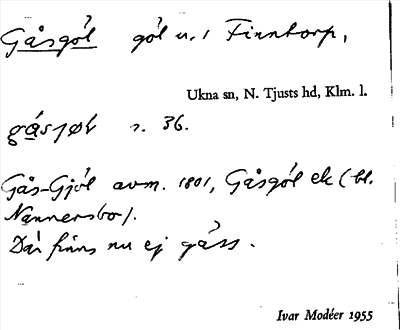 Gåsgöl göl u. i Finntorp,
Ukna sn, N. Tjusts hd, Klm. l.
s. 36.
Gås-Gjöl avm. 1801, Gåsgöl ek (bl.
Nannersbo).
Där finns nu ej gäss.
Ivar Modéer 1955